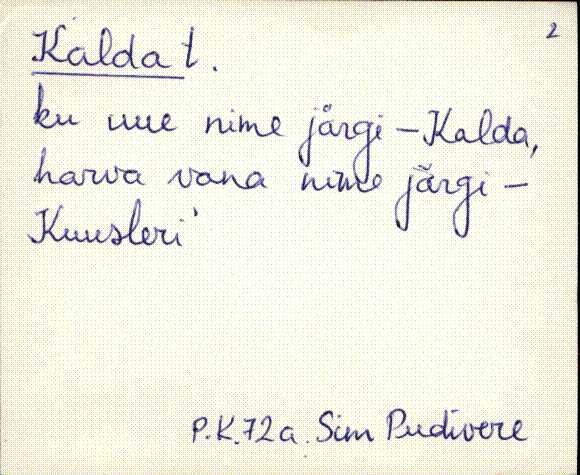 2
Kalda t.
ku uue nime järgi – Kalda,
harva vana nime järgi –
Kuusleri'
P.K. 72 a. Sim Pudivere